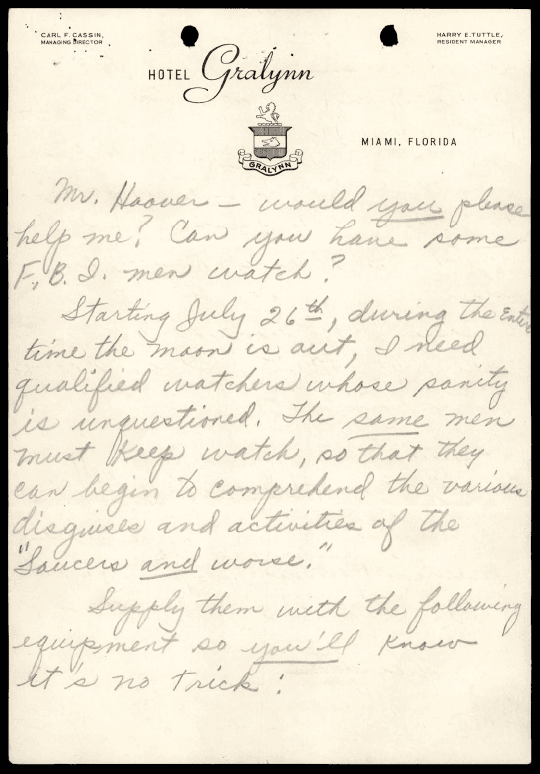 CARL F. CASSIN,
MANAGING DIRECTOR
HARRY E. TUTTLE,
RESIDENT MANAGER
HOTEL Gralynn
GRALYNN
MIAMI, FLORIDA
Mr. Hoover – would you please
help me? Can you have some
F.B.I. men watch?
Starting July 26th, during the entire
time the moon is out, I need
qualified watchers whose sanity
is unquestioned. The same men
must keep watch, so that they
can begin to comprehend the various
disguises and activities of the
"Saucers and worse."
Supply them with the following
equipment so you'll know
it's no trick: